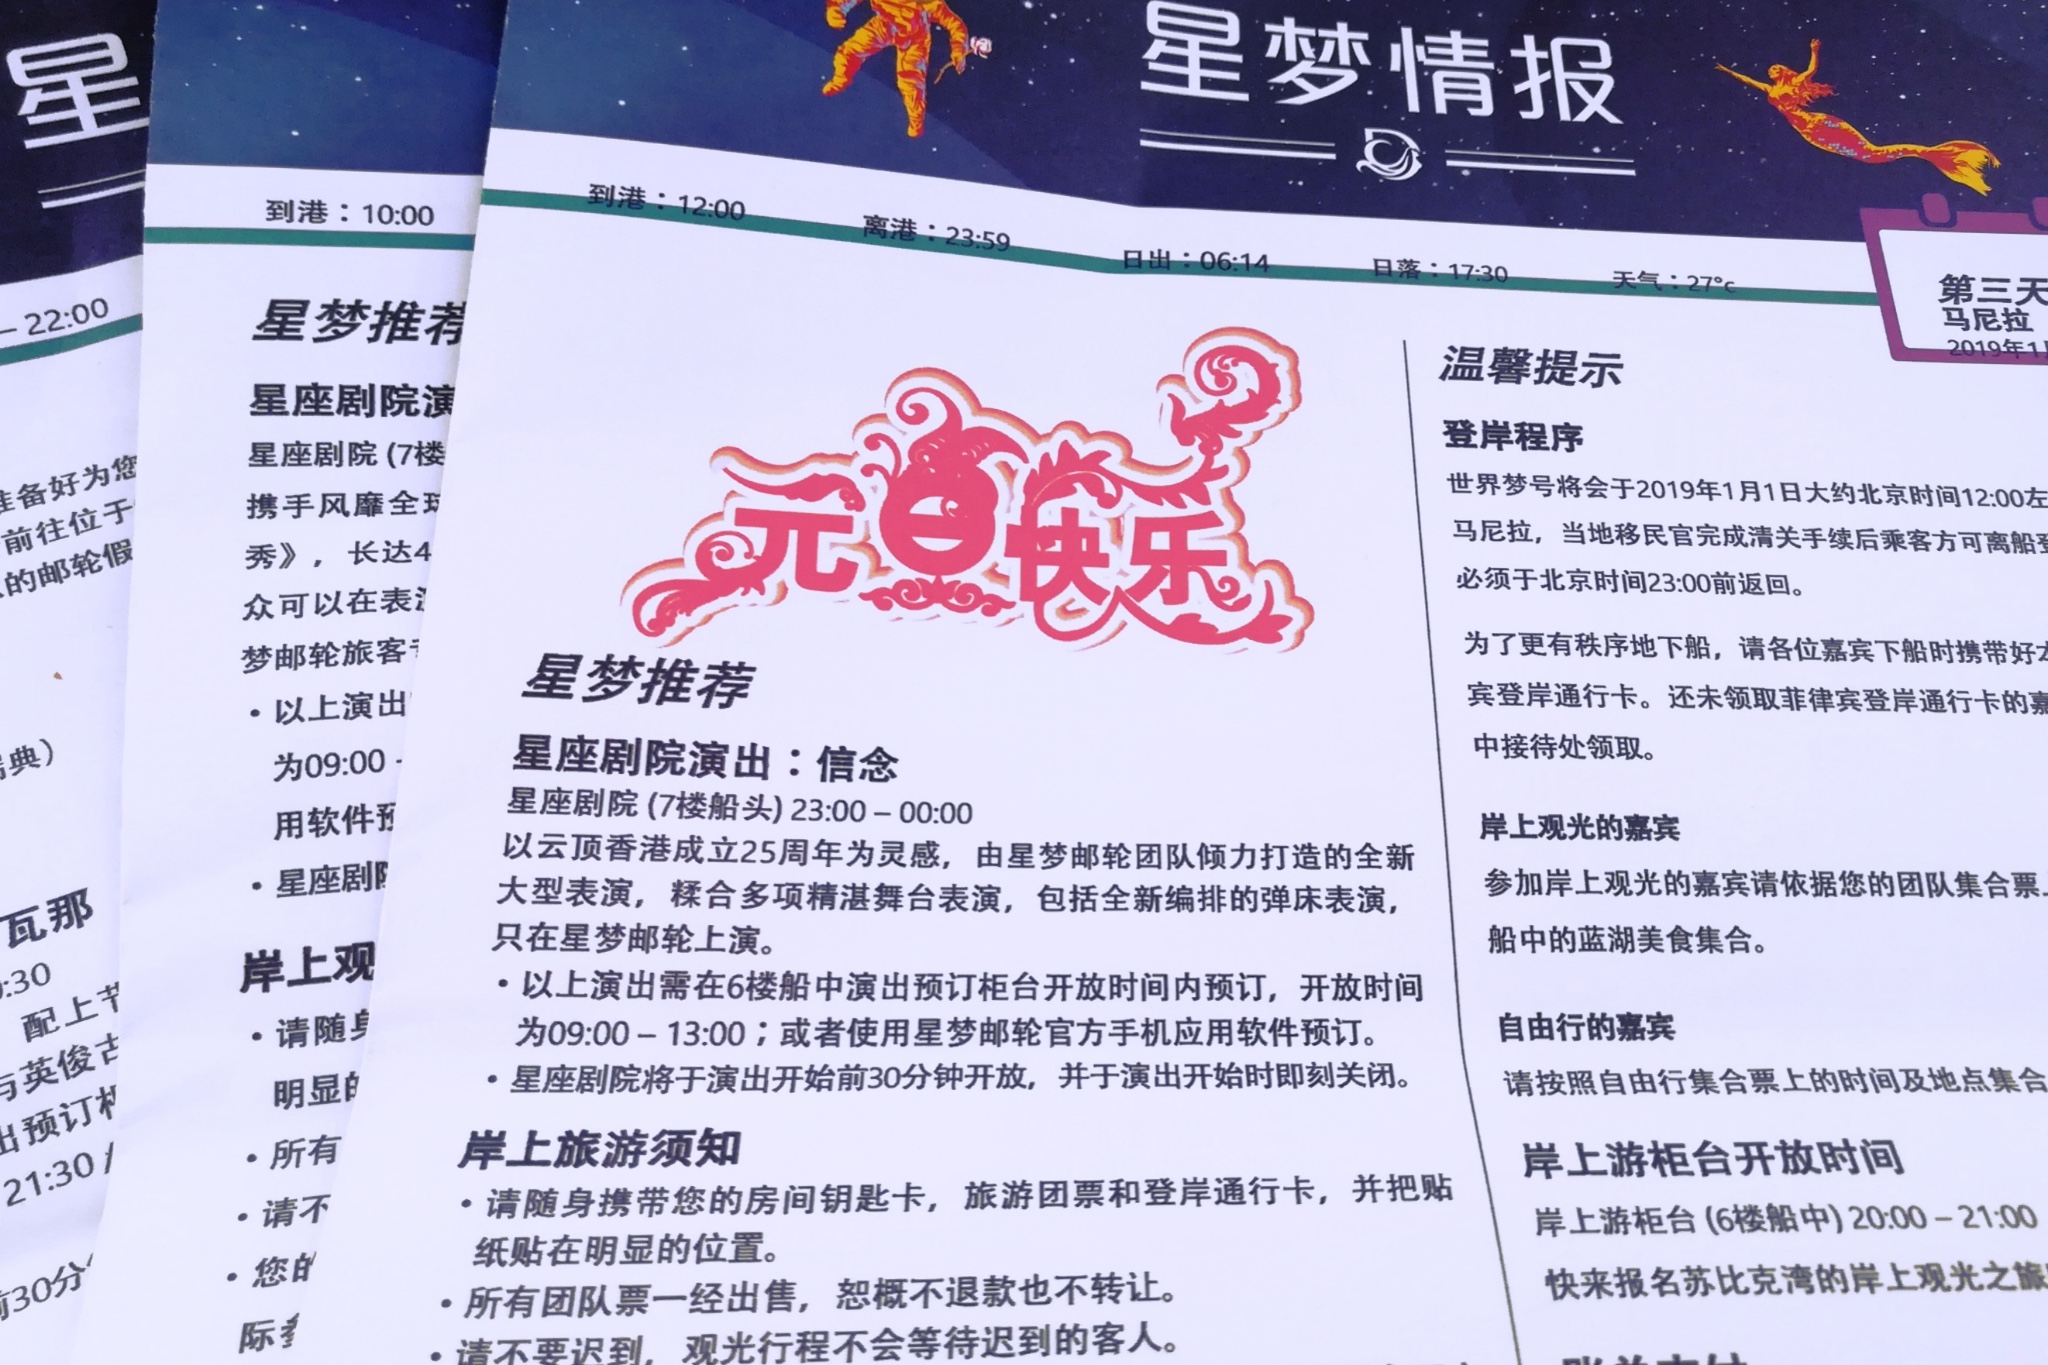 星
– 22:00
准备好为您
前往位于
的邮轮假
典）
瓦那
:30
配上节
与英俊古
出预订柜
21:30
前30分
到港：10:00
星梦推荐
星座剧院演
星座剧院 (7楼
携手风靡全球
秀》，长达4
众可以在表演
梦邮轮旅客
• 以上演出
为09:00 -
用软件预
• 星座剧院
岸上观
• 请随身
明显的
• 所有
• 请不
• 您的
际
星梦情报
到港：12:00 离港：23:59 日出：06:14 日落：17:30 天气：27°c
第三天
马尼拉
2019年1月
元旦快乐
星梦推荐
星座剧院演出：信念
星座剧院 (7楼船头) 23:00 – 00:00
以云顶香港成立25周年为灵感，由星梦邮轮团队倾力打造的全新
大型表演，糅合多项精湛舞台表演，包括全新编排的弹床表演，
只在星梦邮轮上演。
• 以上演出需在6楼船中演出预订柜台开放时间内预订，开放时间
为09:00 – 13:00；或者使用星梦邮轮官方手机应用软件预订。
• 星座剧院将于演出开始前30分钟开放，并于演出开始时即刻关闭。
岸上旅游须知
• 请随身携带您的房间钥匙卡，旅游团票和登岸通行卡，并把贴
纸贴在明显的位置。
• 所有团队票一经出售，恕概不退款也不转让。
• 请不要迟到，观光行程不会等待迟到的客人。
温馨提示
登岸程序
世界梦号将会于2019年1月1日大约北京时间12:00左
马尼拉，当地移民官完成清关手续后乘客方可离船登
必须于北京时间23:00前返回。
为了更有秩序地下船，请各位嘉宾下船时携带好本
宾登岸通行卡。还未领取菲律宾登岸通行卡的嘉
中接待处领取。
岸上观光的嘉宾
参加岸上观光的嘉宾请依据您的团队集合票上
船中的蓝湖美食集合。
自由行的嘉宾
请按照自由行集合票上的时间及地点集合
岸上游柜台开放时间
岸上游柜台 (6楼船中) 20:00 – 21:00
快来报名苏比克湾的岸上观光之旅
账单支付